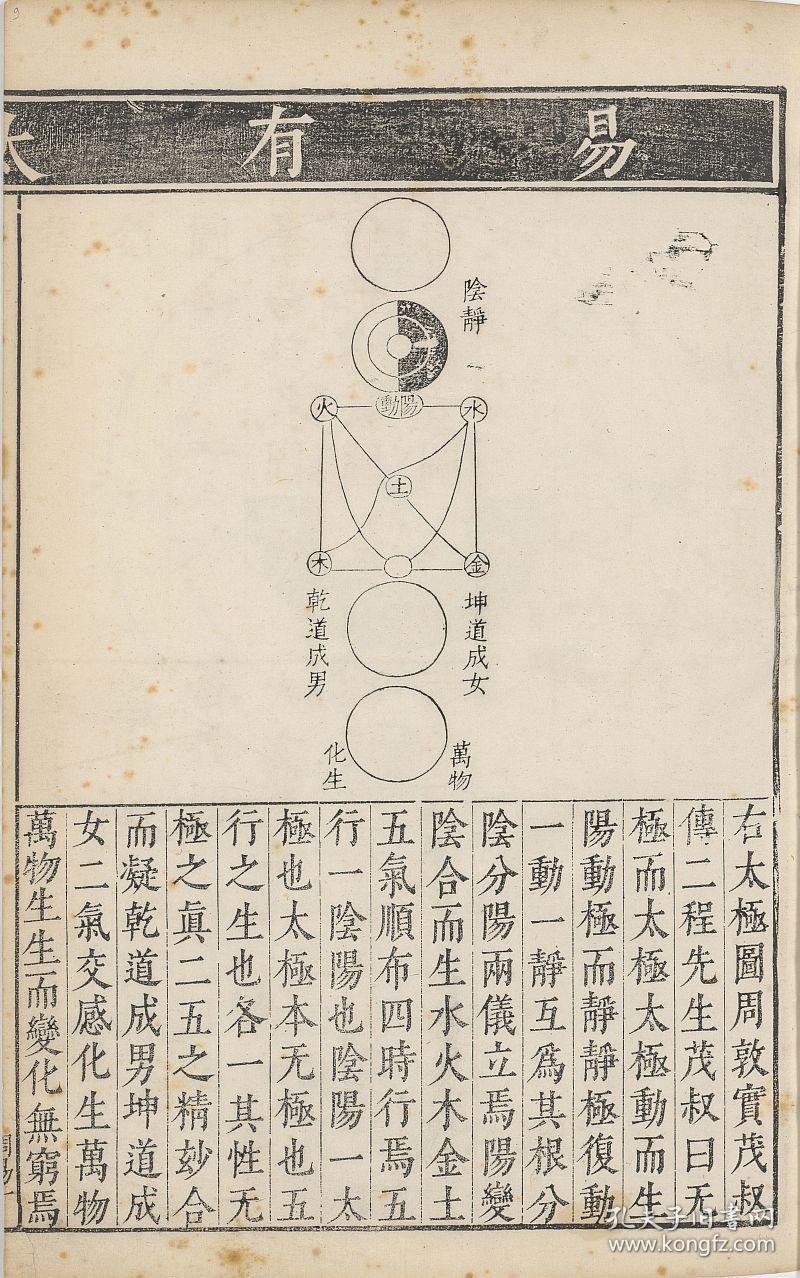 易有太
陰靜
陽動
火
水
土
木
金
乾道成男
坤道成女
化生
萬物
右太極圖周敦實茂叔
傳二程先生茂叔曰无
極而太極太極動而生
陽動極而靜靜極復動
一動一靜互爲其根分
陰分陽兩儀立焉陽變
陰合而生水火木金土
五氣順布四時行焉五
行一陰陽也陰陽一太
極也太極本无極也五
行之生也各一其性无
極之眞二五之精妙合
而凝乾道成男坤道成
女二氣交感化生萬物
萬物生生而變化無窮焉
孔夫子旧書网
www.kongfz.com
9